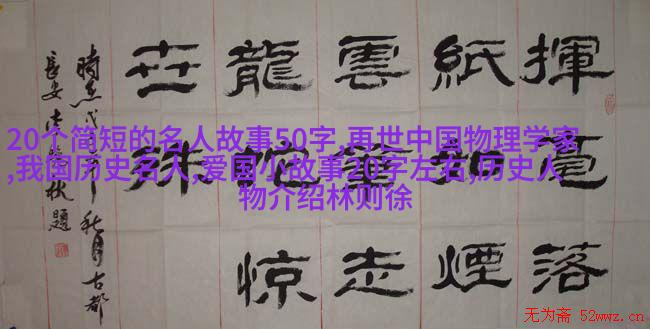 揮毫落
紙如煙
雲筆走
龍蛇惊
世殊
秋月古都
長安
題
20个简短的名人故事50字,再世中国物理学家
,我国历史名人,爱国小故事20字左右,历史人
物介绍林则徐
无为斋 52wwz.cn